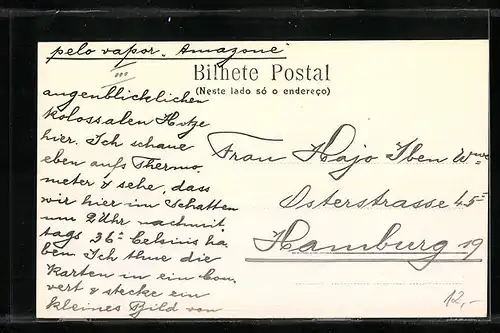 pelo vapor „Amazone"
Bilhete Postal
(Neste lado só o endereço)
augenblicklichen
kolossalen Hitze
hier. Ich schaue
eben aufs Thermo,
meter & sehe, dass
wir hier im Schatten
um 2 Uhr nachmit,
tags 36° Celsius ha,
ben. Ich thue die
Karten in ein Cou,
vert & stecke ein
kleines Bild von
Frau Hajo Iben Wwe
Osterstrasse 45
Hamburg 19
12,-